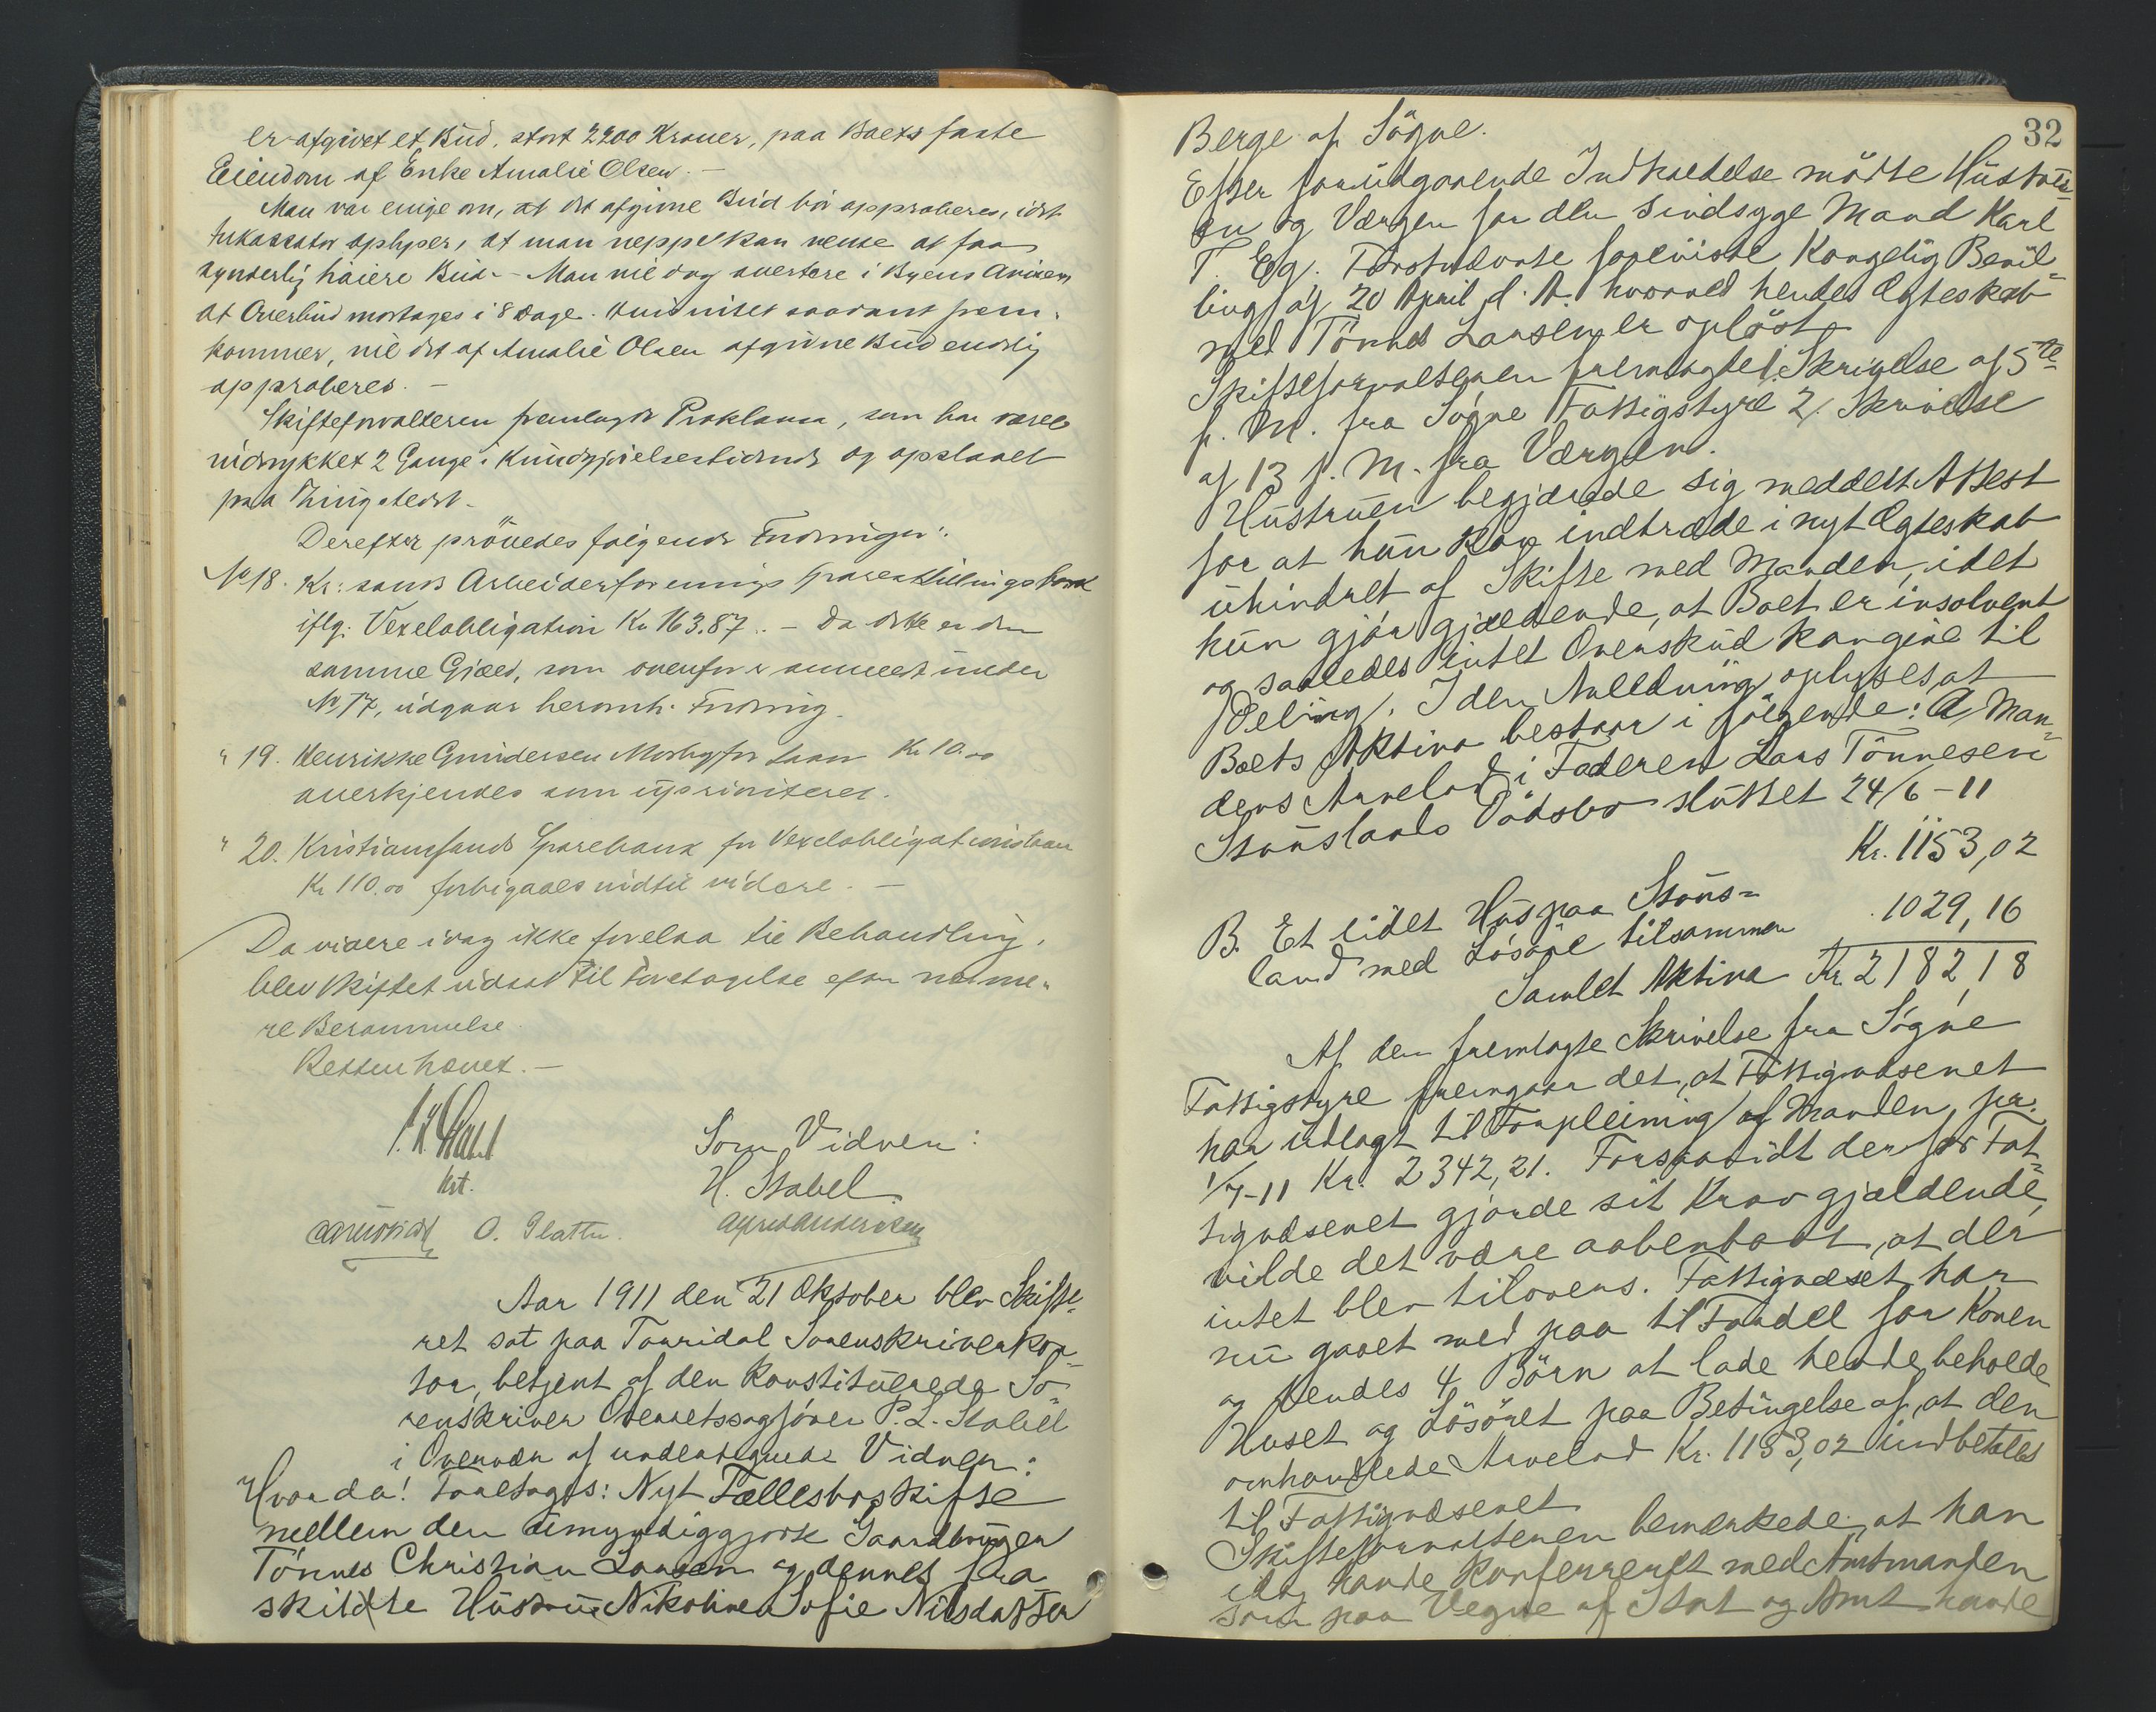 er afgivet et Bud, stort 2200 Kroner, paa Boets faste
Eiendom af Enke Amalie Olsen. –
Man var enige om, at det afgivne Bud bør approberes, idet
Inkassator oplyser, at man neppe kan vente at faa
synderlig høiere Bud. – Man vil dog avertere i Byens Aviser,
at Overbud mottages i 8 Dage. Hvis intet saadant frem-
kommer, vil det af Amalie Olsen afgivne Bud endelig
approberes. –
Skifteforvalteren fremlagde Proklama, som har været
indrykket 2 Gange i Kundgjørelsestidende og opslaaet
paa Thingstedet.
Derefter prövedes følgende Fordringer:
No 18. Kr:sands Arbeiderforenings Spareskillingsbank
iflg. Vexelobligation Kr 163.87. – Da dette er den
samme Gjæld, som ovenfor er anmeldt under
No 17, udgaar herom Fordring.
" 19. Henrikke Gundersen Mosby for Laan Kr 10.00
anerkjendes som uprioriteret.
" 20. Kristianssands Sparebank for Vexelobligationslaan
Kr 110.00 forbigaaes indtil videre. –
Da videre idag ikke forelaa til Behandling,
blev Skiftet udsat til Foretagelse efter nærme-
re Berammelse.
Retten hævet. –
P. L. Stabel
kst.
Som Vidner:
H. Stabel
O. Slatta.
Alfred Andersen
Aar 1911 den 21 Oktober blev Skifte-
ret sat paa Torridal Sorenskriverkon-
tor, betjent af den konstituerede So-
renskriver Overretssagfører P. L. Stabel
i Overvær af undertegnede Vidner:
Hvor da! Foretoges: Nyt Fællesboskifte
mellem den umyndiggjorte Gaardbruger
Tönnes Christian Larsen og dennes fra
skildte Hustru Nikoline Sofie Nilsdatter
32
Berge af Sögne.
Efter forudgaaende Indkaldelse mödte Hustru-
en og Værgen for den sindsyge Mand Karl
T. Eg. Förstnævnte foreviste Kongelig Bevil-
ling af 20 April d. A. hvorved hendes Ægteskab
med Tönnes Larsen er oplöst.
Skifteforvalteren fremlagde 1. Skrivelse af 5te
f. M. fra Sögne Fattigstyre 2. Skrivelse
af 13 f. M. fra Værgen.
Hustruen begjærede sig meddelt Attest
for at hun kan indtræde i nyt Ægteskab
uhindret af Skifte med Manden, idet
hun gjör gjældende, at Boet er insolvent
og saaledes intet Overskud kan give til
Deling. I den Anledning oplyses, at
Boets Aktiva bestaar i fölgende: A. Man-
dens Arvelod i Faderen Lars Tönnesen
Stauslands Dödsbo sluttet 24/6-11
Kr. 1153,02
B. Et lidet Hus paa Staus-
land med Lösöre tilsammen 1029,16
Samlet Aktiva Kr. 2182,18
Af den fremlagte Skrivelse fra Sögne
Fattigstyre fremgaar det, at Fattigvæsenet
har udlagt til Forpleining af Manden pr.
1/7-11 Kr. 2342,21. Forsaavidt derfor Fat-
tigvæsenet gjorde sit Krav gjældende,
vilde det være aabenbart, at der
intet blev tilovers. Fattigvæset har
nu gaaet med paa til Fordel for Konen
og hendes 4 Börn at lade hende beholde
Huset og Lösöret paa Betingelse af, at den
omhandlede Arvelod Kr. 1153,02 indbetales
til Fattigvæsenet
Skifteforvalteren bemærkede, at han
idag havde konferreret med Amtmanden
som paa Vegne af Stat og Amt havde